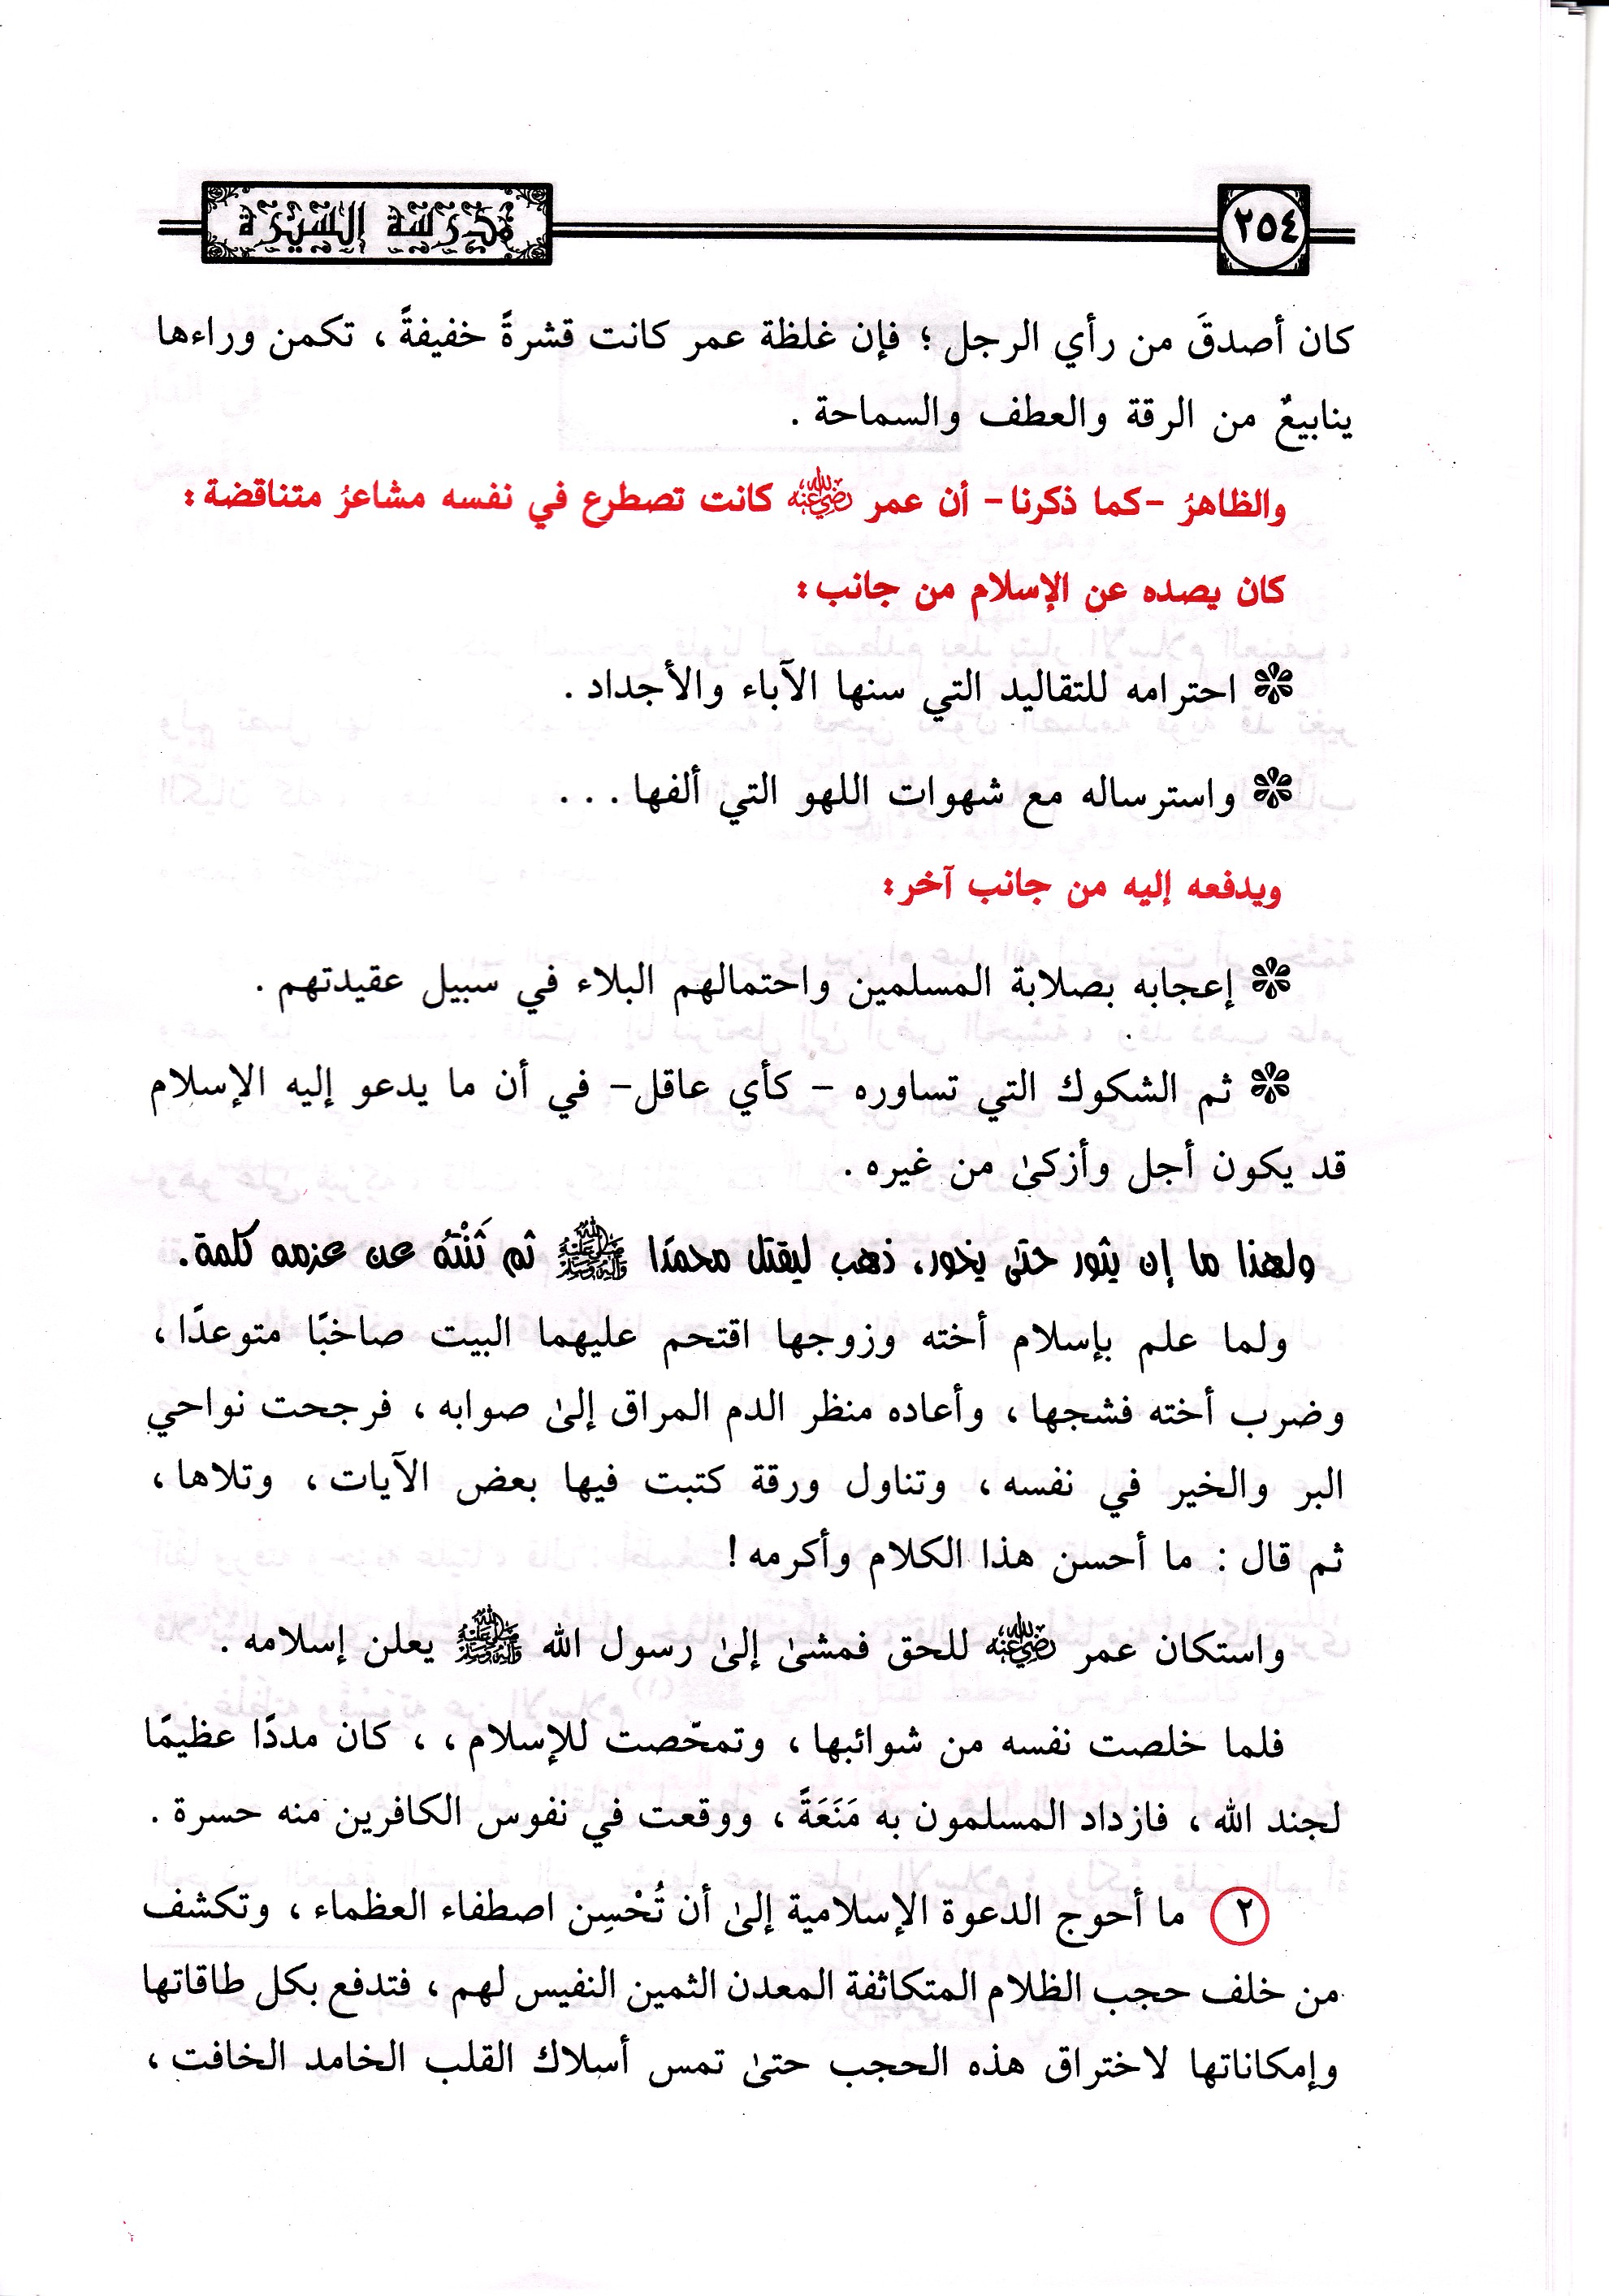 ٢٥٤
مدرسة السيرة
كان أصدقَ من رأي الرجل ؛ فإن غلظة عمر كانت قشرةً خفيفةً ، تكمن وراءها
ينابيعٌ من الرقة والعطف والسماحة .
والظاهرُ -كما ذكرنا- أن عمر رضي الله عنه كانت تصطرع في نفسه مشاعرُ متناقضة :
كان يصده عن الإسلام من جانب :
❇ احترامه للتقاليد التي سنها الآباء والأجداد .
❇ واسترساله مع شهوات اللهو التي ألفها . . .
ويدفعه إليه من جانب آخر :
❇ إعجابه بصلابة المسلمين واحتمالهم البلاء في سبيل عقيدتهم .
❇ ثم الشكوك التي تساوره - كأي عاقل- في أن ما يدعو إليه الإسلام
قد يكون أجل وأزكىٰ من غيره .
ولهذا ما إن يثور حتىٰ يخور، ذهب ليقتل محمدًا ﷺ ثم ثَنْتهُ عن عزمه كلمة.
ولما علم بإسلام أخته وزوجها اقتحم عليهما البيت صاخبًا متوعدًا ،
وضرب أخته فشجها ، وأعاده منظر الدم المراق إلىٰ صوابه ، فرجحت نواحي
البر والخير في نفسه ، وتناول ورقة كتبت فيها بعض الآيات ، وتلاها ،
ثم قال : ما أحسن هذا الكلام وأكرمه !
واستكان عمر رضي الله عنه للحق فمشىٰ إلىٰ رسول الله ﷺ يعلن إسلامه .
فلما خلصت نفسه من شوائبها ، وتمحّصت للإسلام ، ، كان مددًا عظيمًا
لجند الله ، فازداد المسلمون به مَنَعَةً ، ووقعت في نفوس الكافرين منه حسرة .
٢ ما أحوج الدعوة الإسلامية إلىٰ أن تُحْسِن اصطفاء العظماء ، وتكشف
من خلف حجب الظلام المتكاثفة المعدن الثمين النفيس لهم ، فتدفع بكل طاقاتها
وإمكاناتها لاختراق هذه الحجب حتىٰ تمس أسلاك القلب الخامد الخافت ،